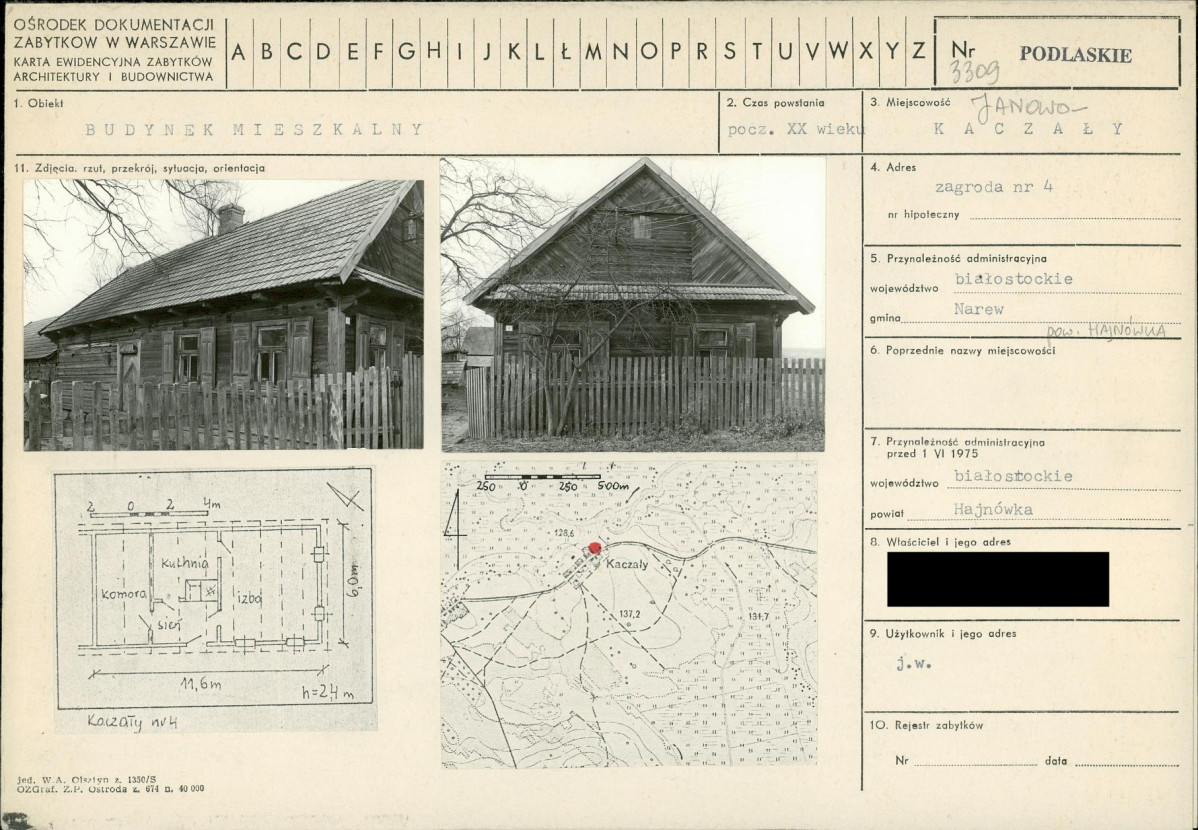 OŚRODEK DOKUMENTACJI
ZABYTKOW W WARSZAWIE
KARTA EWIDENCYJNA ZABYTKÓW
ARCHITEKTURY I BUDOWNICTWA
A B C D E F G H I J K L Ł M N O P R S T U V W X Y Z
Nr
3309
PODLASKIE
1. Obiekt
BUDYNEK MIESZKALNY
2. Czas powstania
pocz. XX wieku
3. Miejscowość
JANOWO-
KACZAŁY
11. Zdjęcia. rzut, przekrój, sytuacja, orientacja
4. Adres
zagroda nr 4
nr hipoteczny
5. Przynależność administracyjna
województwo białostockie
gmina Narew
pow. HAJNÓWKA
6. Poprzednie nazwy miejscowości
7. Przynależność administracyjna
przed 1 VI 1975
województwo białostockie
powiat Hajnówka
8. Właściciel i jego adres
9. Użytkownik i jego adres
j.w.
10. Rejestr zabytków
Nr data
2 0 2 4m
kuchnia
komora
izba
sień
6,0m
11,6m
h=2,4 m
Kaczały nr 4
250 0 250 500m
128,6
Kaczały
137,2
131,7
Jed. W.A. Olsztyn z. 1350/S
OZGraf. Z.P. Ostróda z. 674 n. 40 000